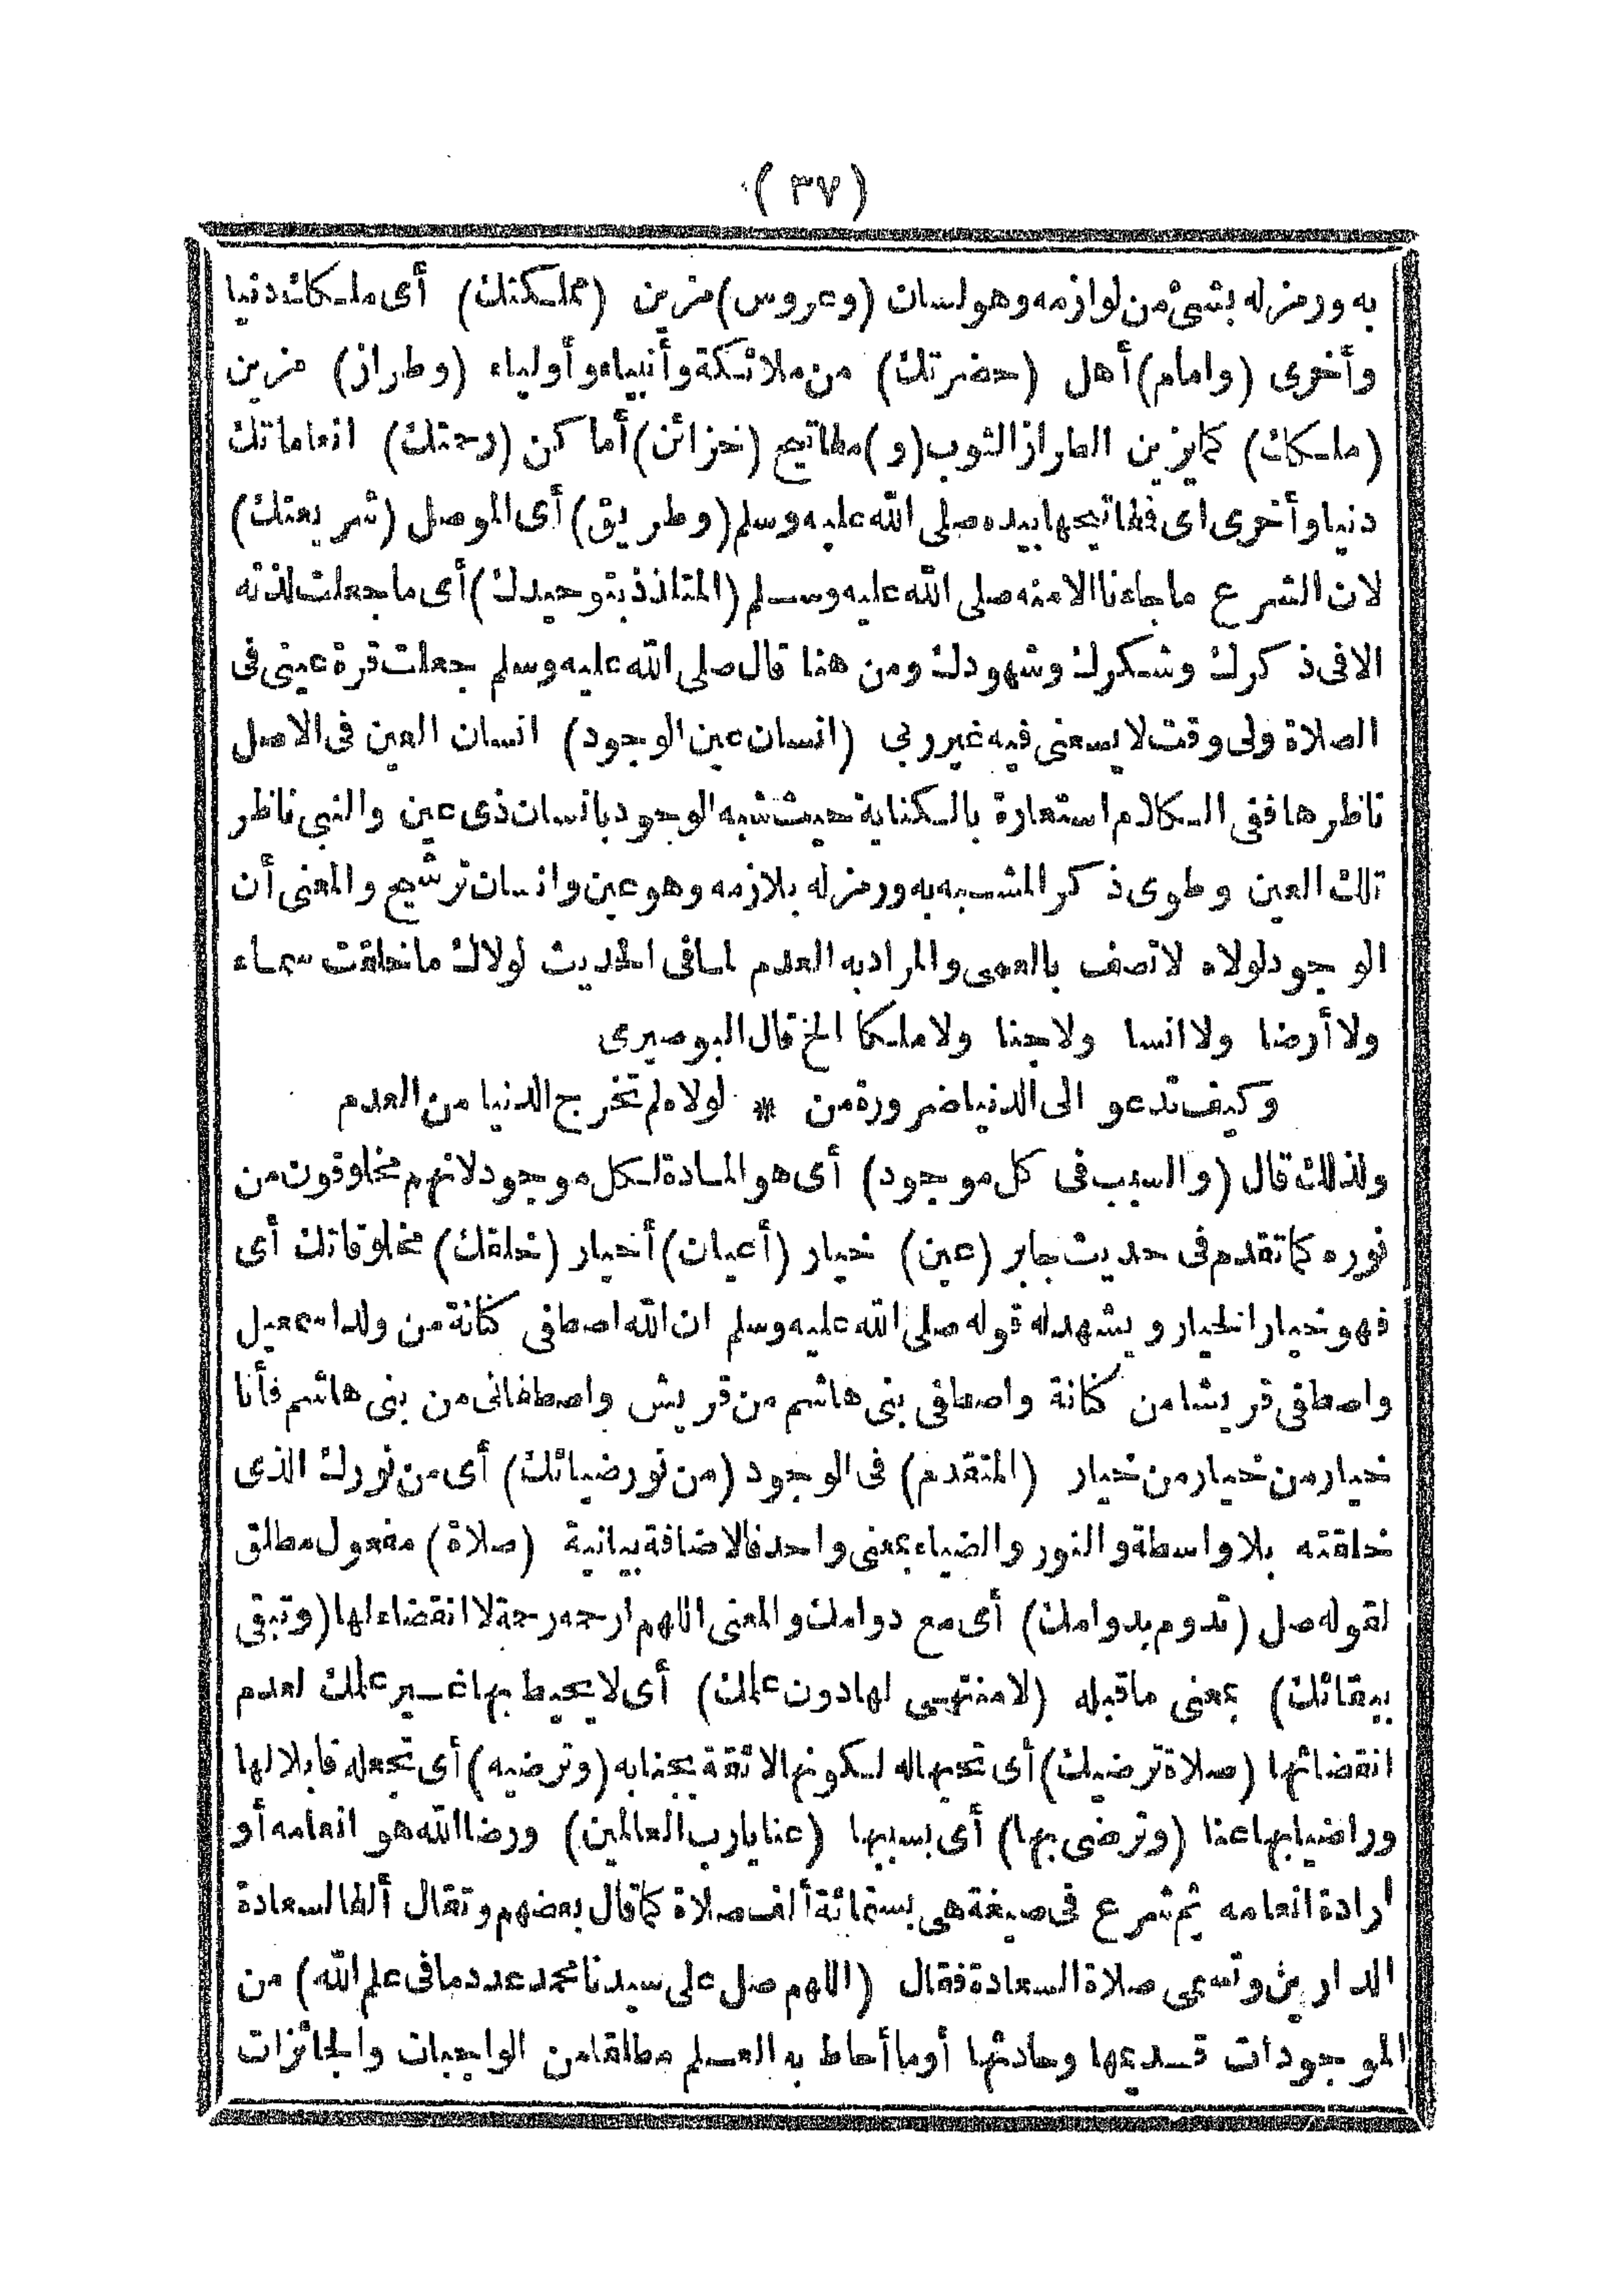 ( ٣٧ )
به ورمز له بشئ من لوازمه وهو لسان (وعروس) مزين (مملكتك) أى ملكك دنيا
وأخرى (وامام) أهل (حضرتك) من ملائكة وأنبياء وأولياء (وطراز) مزين
(ملكك) كما يزين الطراز الثوب (و) مفاتيح (خزائن) أماكن (رحمتك) انعاماتك
دنيا وأخرى اى فمفاتيحها بيده صلى الله عليه وسلم (وطريق) أى الموصل (شريعتك)
لان الشرع ما جاءنا الا منه صلى الله عليه وسلم (المتلذذ بتوحيدك) أى ما جعلت لذته
الا فى ذكرك وشكرك وشهودك ومن هنا قال صلى الله عليه وسلم جعلت قرة عينى فى
الصلاة ولى وقت لا يسعنى فيه غير ربى (انسان عين الوجود) انسان العين فى الاصل
ناظرها ففى الكلام استعارة بالكناية حيث شبه الوجود بانسان ذى عين والنبى ناظر
تلك العين وطوى ذكر المشبه به ورمز له بلازمه وهو عين وانسان ترشيح والمعنى أن
الوجود لولاه لاتصف بالعمى والمراد به العدم لما فى الحديث لولاك ما خلقت سماء
ولا أرضا ولا انسا ولا جنا ولا ملكا الخ قال البوصيرى
وكيف تدعو الى الدنيا ضرورة من * لولاه لم تخرج الدنيا من العدم
ولذلك قال (والسبب فى كل موجود) أى هو المادة لكل موجود لانهم مخلوقون من
نوره كما تقدم فى حديث جابر (عين) خيار (أعيان) أخيار (خلقك) مخلوقاتك أى
فهو خيار الخيار ويشهد له قوله صلى الله عليه وسلم ان الله اصطفى كنانة من ولد اسمعيل
واصطفى قريشا من كنانة واصطفى بنى هاشم من قريش واصطفانى من بنى هاشم فأنا
خيار من خيار من خيار (المتقدم) فى الوجود (من نور ضيائك) أى من نورك الذى
خلقته بلا واسطة والنور والضياء بمعنى واحد فالاضافة بيانية (صلاة) مفعول مطلق
لقوله صل (تدوم بدوامك) أى مع دوامك والمعنى اللهم ارحمه رحمة لا انقضاء لها (وتبقى
ببقائك) بمعنى ما قبله (لا منتهى لها دون علمك) أى لا يحيط بها غير علمك لعدم
انقضائها (صلاة ترضيك) أى تحبها له لكونها لائقة بجنابه (وترضيه) أى تجعله قابلا لها
وراضيا بها عنا (وترضى بها) أى بسببها (عنا يا رب العالمين) ورضا الله هو انعامه أو
ارادة انعامه ثم شرع فى صيغة هى بستمائة ألف صلاة كما قال بعضهم وتقال ألفا لسعادة
الدارين وتسمى صلاة السعادة فقال (اللهم صل على سيدنا محمد عدد ما فى علم الله) من
الموجودات قديمها وحادثها أو ما أحاط به العلم مطلقا من الواجبات والجائزات